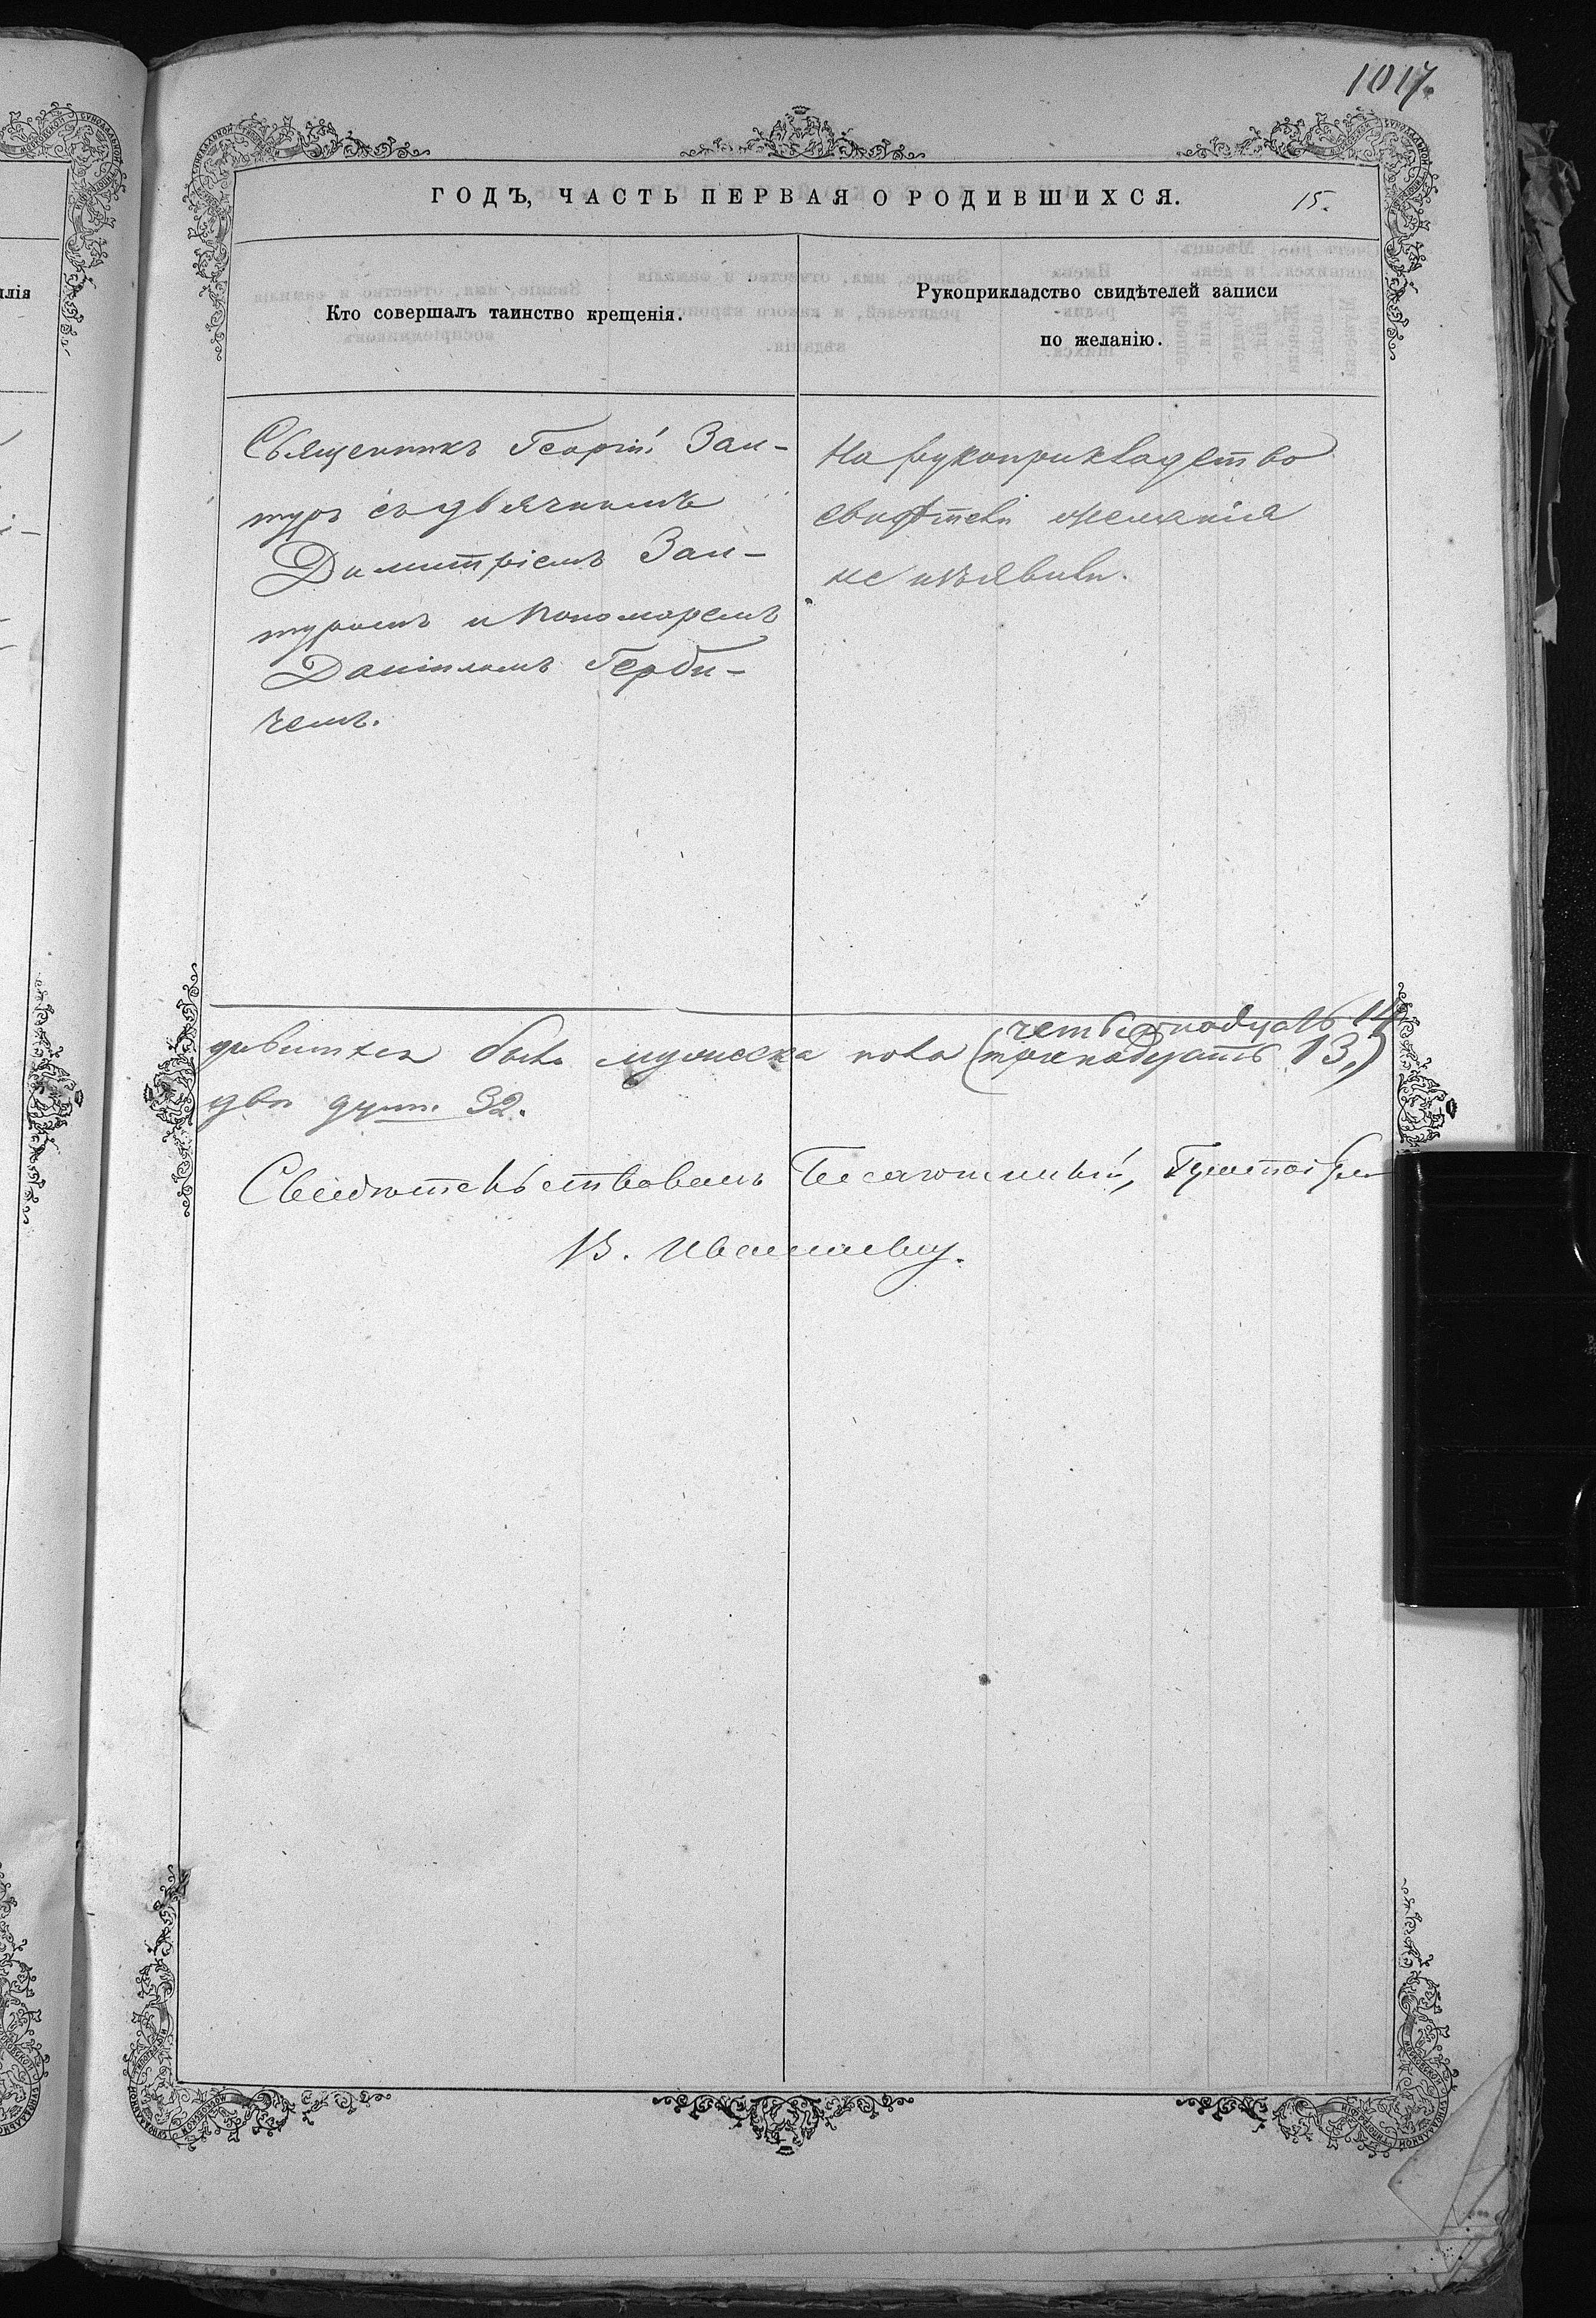 1017.
ГОДЪ, ЧАСТЬ ПЕРВАЯ О РОДИВШИХСЯ. 15.
Кто совершалъ таинство крещенія.
Рукоприкладство свидѣтелей записи
по желанію.
Священникъ Георгій Зан-
туръ съ дьячкомъ
Димитріемъ Зан-
туромъ и Пономаремъ
Даніиломъ Герби-
чемъ.
На рукоприкладство
свидѣтели желанія
не изъявили.
четырнадцать 14
было мужеска пола (тринадцать 13,)
два душъ 32.
Свидѣтельствовалъ
В.
лія